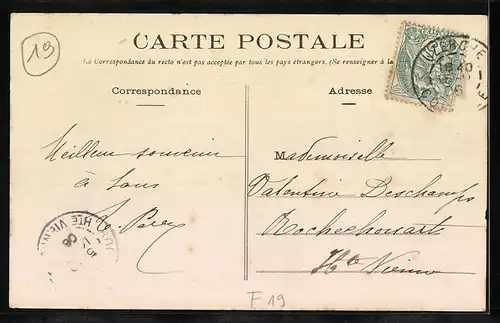 19
CARTE POSTALE
La Correspondance du recto n'est pas acceptée par tous les pays étrangers. (Se renseigner à la
Correspondance
Adresse
UZERCHE
Meilleur souvenir
à tous
Mademoiselle
Valentine Deschamps
Rochechouart
Hte Vienne
HTE VIENNE
F 19